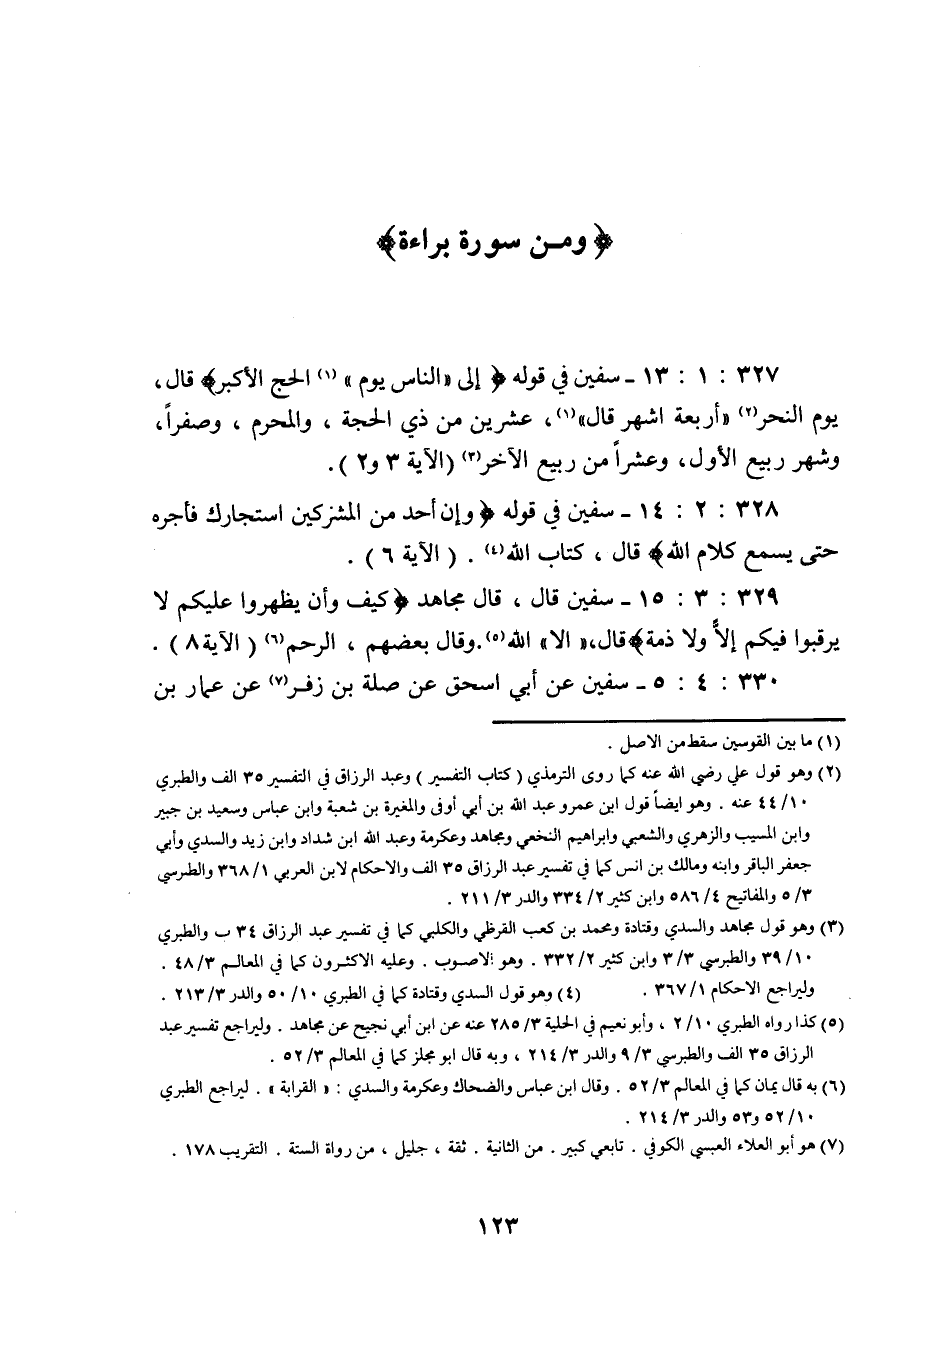 ﴿ومن سورة براءة﴾
٣٢٧ : ١ : ١٣ ـ سفين في قوله ﴿ إلى «الناس يوم » (١) الحج الأكبر﴾ قال،
يوم النحر(٢) «أربعة اشهر قال»(١)، عشرين من ذي الحجة ، والمحرم ، وصفراً،
وشهر ربيع الأول، وعشراً من ربيع الآخر(٣) (الآية ٣ و٢ ).
٣٢٨ : ٢ : ١٤ ـ سفين في قوله ﴿ وإن أحد من المشركين استجارك فأجره
حتى يسمع كلام الله﴾ قال ، كتاب الله(٤) . ( الآية ٦ ) .
٣٢٩ : ٣ : ١٥ ـ سفين قال ، قال مجاهد ﴿كيف وأن يظهروا عليكم لا
يرقبوا فيكم إلاًّ ولا ذمة﴾قال،« الا» الله(٥).وقال بعضهم ، الرحم(٦) ( الآية٨ ) .
٣٣٠ : ٤ : ٥ ـ سفين عن أبي اسحق عن صلة بن زفر(٧) عن عمار بن
(١) ما بين القوسين سقط من الاصل .
(٢) وهو قول علي رضي الله عنه كما روى الترمذي ( كتاب التفسير ) وعبد الرزاق في التفسير ٣٥ الف والطبري
١٠/ ٤٤ عنه . وهو ايضاً قول ابن عمرو عبد الله بن أبي أوفى والمغيرة بن شعبة وابن عباس وسعيد بن جبير
وابن المسيب والزهري والشعبي وابراهيم النخعي ومجاهد وعكرمة وعبد الله ابن شداد وابن زيد والسدي وأبي
جعفر الباقر وابنه ومالك بن انس كما في تفسير عبد الرزاق ٣٥ الف والاحكام لابن العربي ١/ ٣٦٨ والطرسي
٣/ ٥ والمفاتيح ٤/ ٥٨٦ وابن كثير ٢/ ٣٣٤ والدر ٣/ ٢١١ .
(٣) وهو قول مجاهد والسدي وقتادة ومحمد بن كعب القرظي والكلبي كما في تفسير عبد الرزاق ٣٤ ب والطبري
١٠/ ٣٩ والطبرسي ٣/ ٣ وابن كثير ٢/ ٣٣٢ . وهو الاصوب . وعليه الاكثرون كما في المعالم ٣/ ٤٨ .
وليراجع الاحكام ١/ ٣٦٧ . (٤) وهو قول السدي وقتادة كما في الطبري ١٠/ ٥٠ والدر ٣/ ٢١٣ .
(٥) كذا رواه الطبري ١٠/ ٢ ، وأبو نعيم في الحلية ٣/ ٢٨٥ عنه عن ابن أبي نجيح عن مجاهد . وليراجع تفسير عبد
الرزاق ٣٥ الف والطبرسي ٣/ ٩ والدر ٣/ ٢١٤ ، وبه قال ابو مجلز كما في المعالم ٣/ ٥٢ .
(٦) به قال يمان كما في المعالم ٣/ ٥٢ . وقال ابن عباس والضحاك وعكرمة والسدي : « القرابة » . ليراجع الطبري
١٠/ ٥٢ و٥٣ والدر ٣/ ٢١٤ .
(٧) هو أبو العلاء العبسي الكوفي . تابعي كبير . من الثانية . ثقة ، جليل ، من رواة الستة . التقريب ١٧٨ .
١٢٣